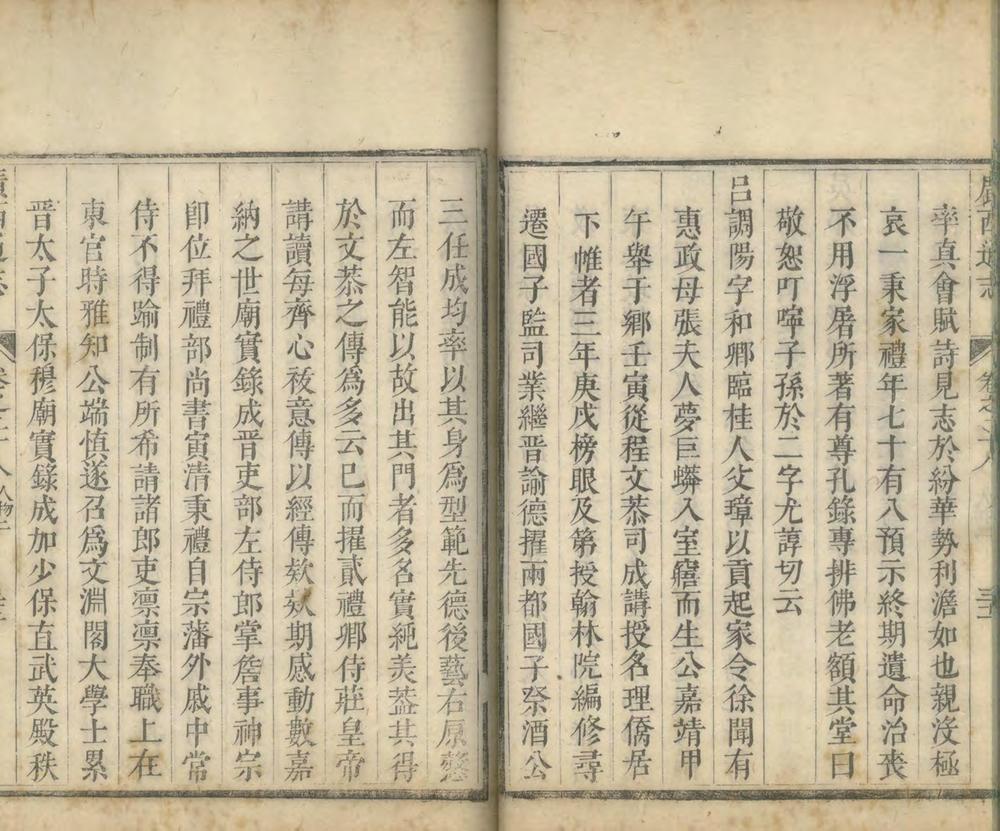 廣西通志
卷之
率真會賦詩見志於紛華勢利澹如也親沒極
哀一秉家禮年七十有八預示終期遺命治喪
不用浮屠所著有尊孔錄專排佛老額其堂曰
敬恕叮嚀子孫於二字尤諄切云
呂調陽字和卿臨桂人父璋以貢起家令徐聞有
惠政母張夫人夢巨蟒入室寤而生公嘉靖甲
午舉于鄉壬寅從程文恭司成講授名理僑居
下帷者三年庚戌榜眼及第授翰林院編修尋
遷國子監司業繼晉諭德擢兩都國子祭酒公
三任成均率以其身為型範先德後藝右原慤
而左智能以故出其門者多名實純美蓋其得
於文恭之傳為多云已而擢貳禮卿侍莊皇帝
講讀每齊心祓意傳以經傳欸欸期感動數嘉
納之世廟實錄成晋吏部左侍郎掌詹事神宗
即位拜禮部尚書寅清秉禮自宗藩外戚中常
侍不得踰制有所希請諸郎吏凛凛奉職上在
東宮時雅知公端慎遂召為文淵閣大學士累
晋太子太保穆廟實錄成加少保直武英殿秩
人物